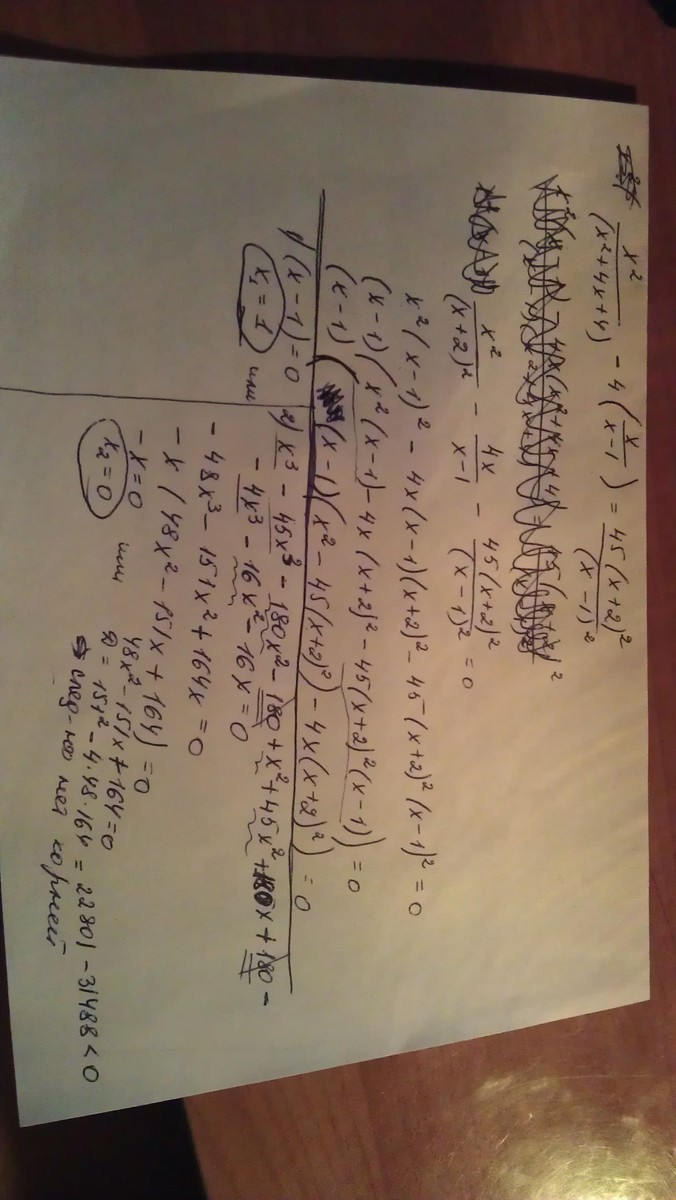 x²/(x²+4x+4) - 4(x/(x-1)) = 45(x+2)²/(x-1)²
x²/(x+2)² - 4x/(x-1) - 45(x+2)²/(x-1)² = 0
x²(x-1)² - 4x(x-1)(x+2)² - 45(x+2)²(x-1)² = 0
(x-1)(x²(x-1) - 4x(x+2)² - 45(x+2)²(x-1)) = 0
(x-1)((x-1)(x² - 45(x+2)²) - 4x(x+2)²) = 0
1) (x-1) = 0
x₁ = 1
или
2) x³ - 45x³ - 180x² - 180 + x² + 45x² + 180x + 180 -
- 4x³ - 16x² - 16x = 0
- 48x³ - 151x² + 164x = 0
- x (48x² - 151x + 164) = 0
- x = 0
x₂ = 0
или
48x² - 151x + 164 = 0
D = 151² - 4·48·164 = 22801 - 31488 < 0
нет корней